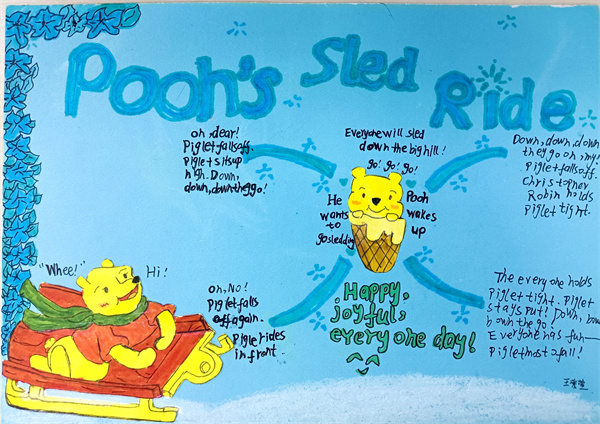 Pooh's Sled Ride
oh, dear!
Piglet falls off.
Piglet sits up
high. Down,
down, down they go!
Everyone will sled
down the big hill!
go! go! go!
Down, down, down
they go on, my!
Piglet falls off.
Christoper
Robin holds
Piglet tight.
He
wants
to
go sledding
Pooh
wakes
up
"Whee!" Hi!
oh, No!
Piglet falls
off again.
Pigle rides
in front.
Happy,
joyful,
every one day!
The every one holds
Piglet tight. Piglet
stays put! Down, down
down the go!
Everyone has fun—
Piglet most of all!